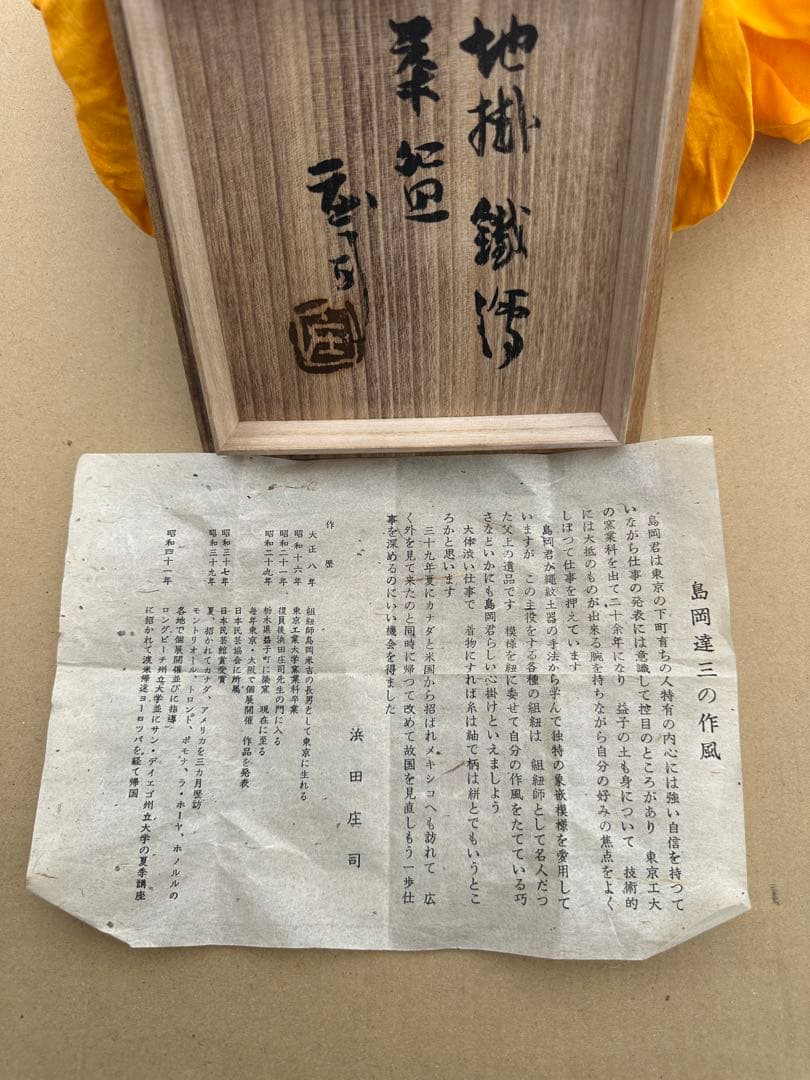 地掛 鐵繪
菜盌
庄司
庄
島岡達三の作風
島岡君は東京の下町育ちの人特有の内心には強い自信を持つて
いながら仕事の発表には意識して控目のところがあり 東京工大
の窯業科を出て二十余年になり 益子の土も身について 技術的
には大抵のものが出来る腕を持ちながら自分の好みの焦点をよく
しぼつて仕事を押えています
島岡君が縄紋土器の手法から学んで独特の象嵌模様を愛用して
いますが この主役をする各種の組紐は 組紐師として名人だつ
た父上の遺品です 模様を紐に委せて自分の作風をたてている巧
さなどいかにも島岡君らしい心掛けといえましよう
大体渋い仕事で 着物にすれば糸は紬で柄は絣とでもいうとこ
ろかと思います
三十九年夏にカナダと米国から招ばれメキシコへも訪れて 広
く外を見て来たのと同時に帰つて改めて故国を見直しもう一歩仕
事を深めるのにいい機会を得ました
浜田庄司
作歴
大正八年 組紐師島岡米吉の長男として東京に生れる
昭和十六年 東京工業大学窯業科卒業
昭和二十一年 復員後浜田庄司先生の門に入る
昭和二十九年 栃木県益子町に築窯 現在に至る
毎年東京・大阪で個展開催 作品を発表
日本民芸協会に所属
昭和三十七年 日本民芸館賞受賞
昭和三十九年 夏、招かれてカナダ、アメリカを三カ月歴訪
モントリオール、トロント、ポモナ、ラ・ホーヤ、ホノルルの
各地で個展開催並びに指導
昭和四十一年 ロングビーチ州立大学並にサン・デイエゴ州立大学の夏季講座
に招かれて渡米帰途ヨーロツパを経て帰国